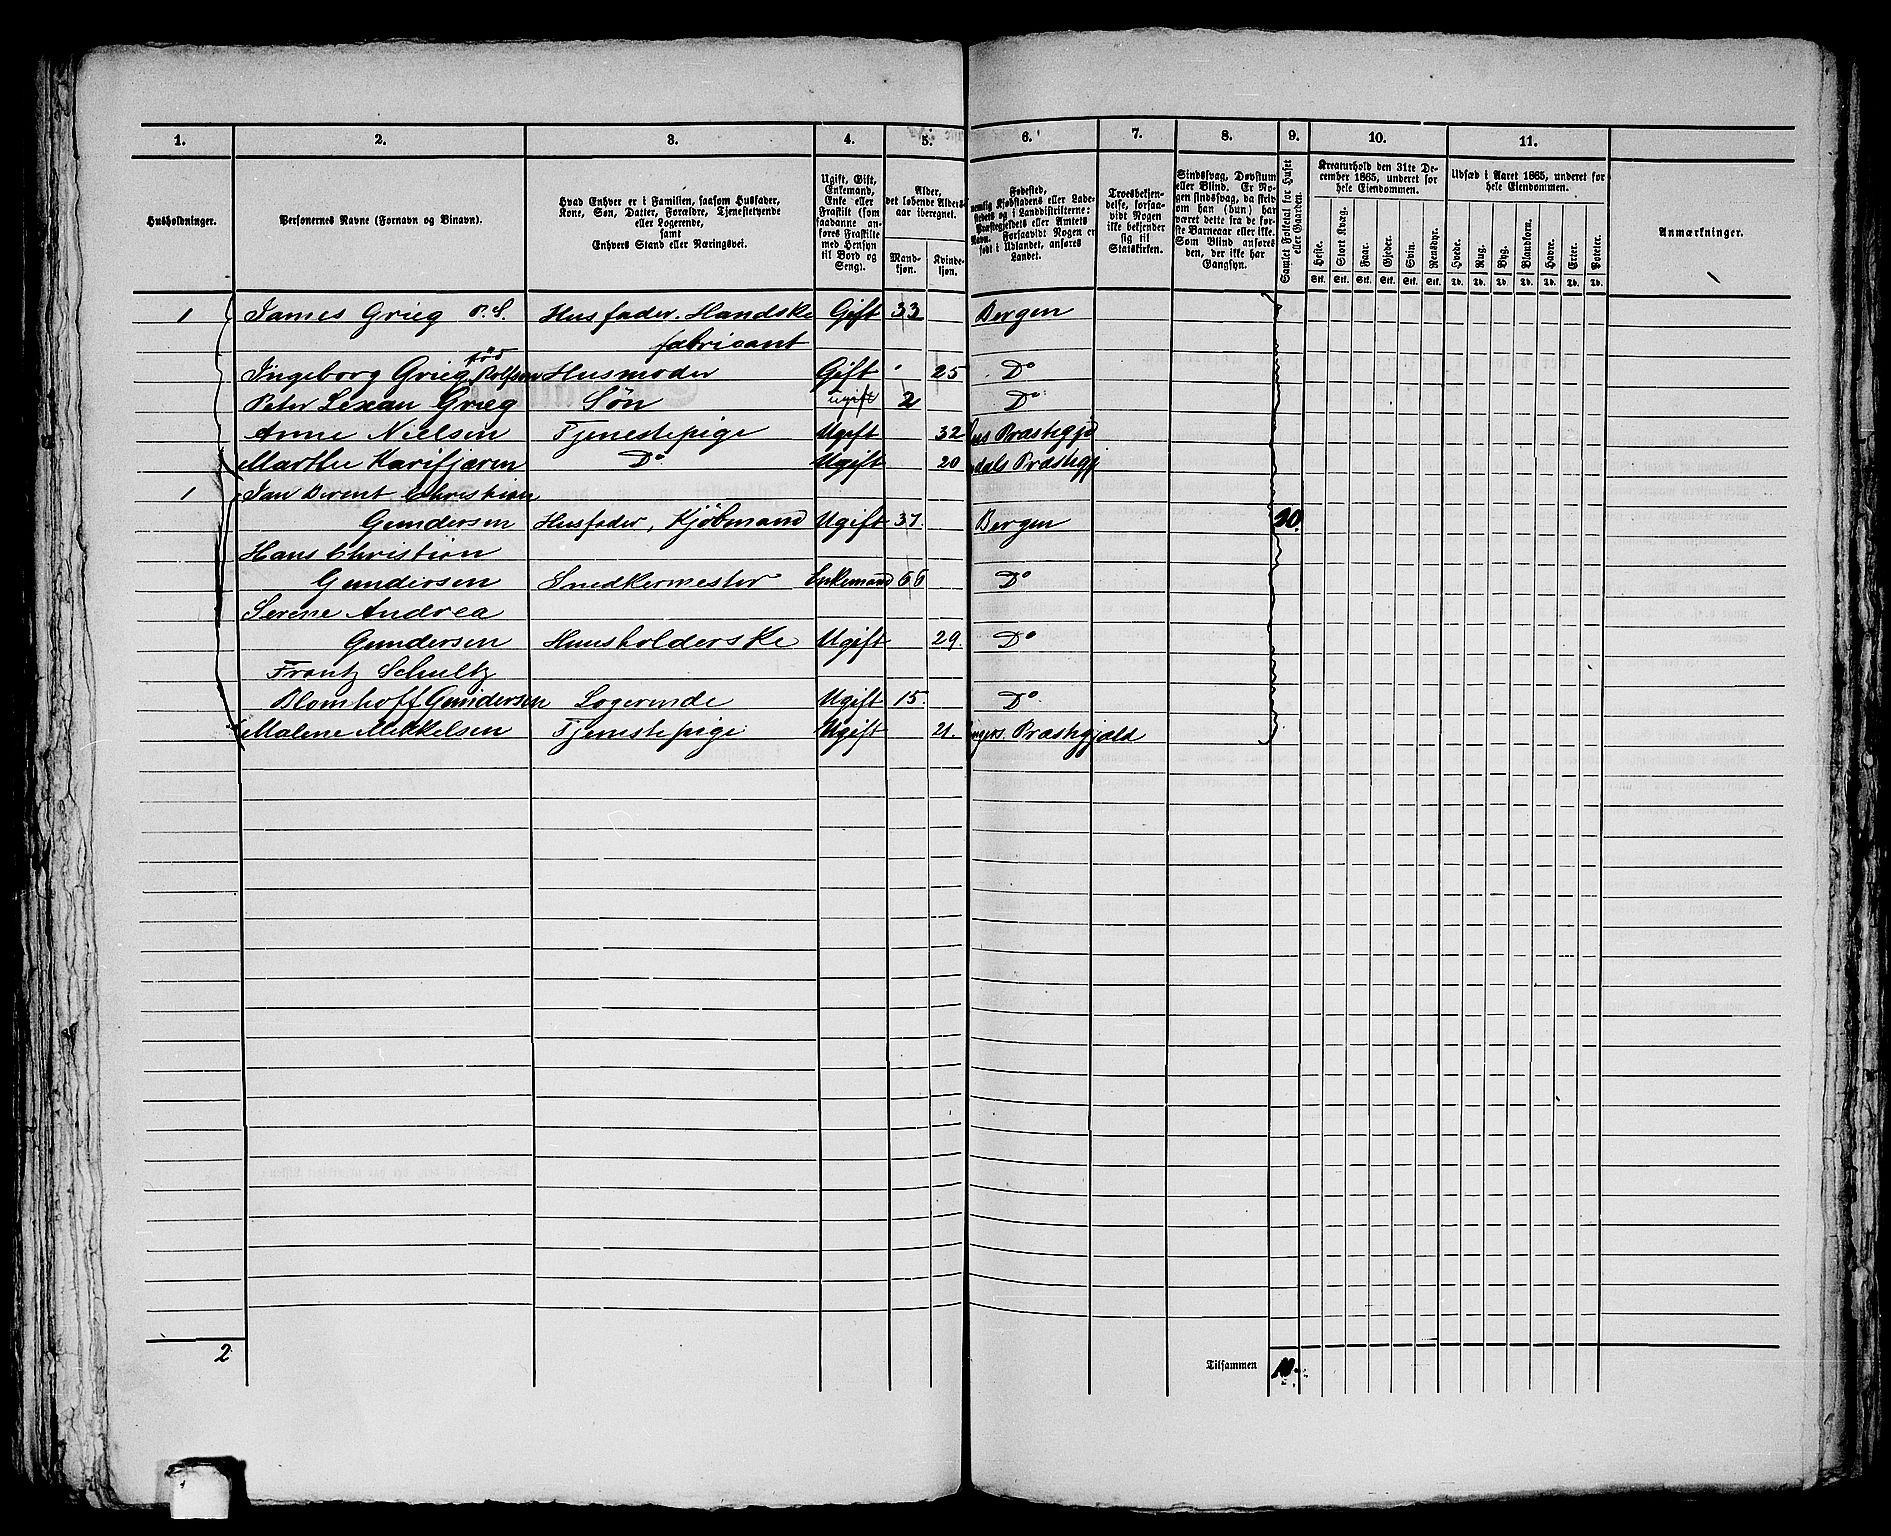 1. 2. 3. 4. 5. 6. 7. 8. 9. 10. 11.
Husholdninger.
Personernes Navne (Fornavn og Binavn).
Hvad Enhver er i Familien, saasom Husfader,
Kone, Søn, Datter, Forældre, Tjenestetyende
eller Logerende,
samt
Enhvers Stand eller Næringsvei.
Ugift, Gift,
Enkemand,
Enke eller
Fraskilt (som
saadanne an-
føres Fraskilte
med Hensyn
til Bord og
Seng).
Alder,
det løbende Alders-
aar iberegnet.
Mand-
kjøn.
Kvinde-
kjøn.
Fødested,
nemlig Kjøbstadens eller Lade-
stedets og i Landdistrikterne:
Præstegjeldets eller Amtets
Navn. Forsaavidt Nogen er
født i Udlandet, anføres
Landet.
Troesbekjen-
delse, forsaa-
vidt Nogen
ikke bekjender
sig til
Statskirken.
Sindssvag, Døvstum
eller Blind. Er No-
gen sindssvag, da skriv
om han (hun) har
været dette fra de før-
ste Barneaar eller ikke.
Som Blind anføres
den, der ikke har
Gangsyn.
Samlet Folketal for Huset
eller Gaarden.
Kreaturhold den 31te De-
cember 1865, underet for
hele Eiendommen.
Heste. Stort Kvæg. Faar. Gjeder. Svin. Rensdyr.
Stk. Stk. Stk. Stk. Stk. Stk.
Udsæd i Aaret 1865, underet for
hele Eiendommen.
Hvede. Rug. Byg. Blandkorn. Havre. Erter. Poteter.
Td. Td. Td. Td. Td. Td. Td.
Anmærkninger.
1 James Grieg P.S. Husfader. Handske Gift 33 Bergen
fabricant
fød
Ingeborg Grieg Rolfsen Husmoder Gift 25 Do
Peter Lexau Grieg Søn Ugift 2 Do
Anne Nielsen Tjenestepige Ugift 32 Præstegjd
Marthe Karifjæren Do Ugift 20 Præstegj
1 Jan Berent Christian
Gundersen Husfader, Kjøbmand Ugift 37. Bergen 10.
Hans Christian
Gundersen Snedkermester Enkemand 66 Do
Serene Andrea
Gundersen Huusholderske Ugift 29. Do
Frantz Schultz
Blomhoff Gundersen Logerende Ugift 15. Do.
Malene Mikkelsen Tjenestepige Ugift 21. Præstegjæld
2 Tilsammen 10.